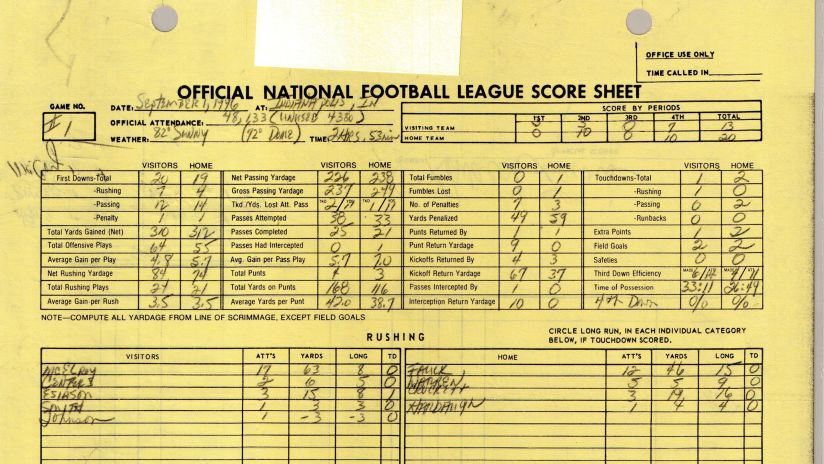 OFFICE USE ONLY
TIME CALLED IN
OFFICIAL NATIONAL FOOTBALL LEAGUE SCORE SHEET
GAME NO. #1
DATE: September 1, 1996 AT: INDIANAPOLIS, IN
OFFICIAL ATTENDANCE: 48,133 (UNUSED 4380)
WEATHER: 82° Sunny (72° Dome) TIME: 2 Hrs, 53 min
SCORE BY PERIODS
1ST 2ND 3RD 4TH TOTAL
VISITING TEAM 3 3 0 7 13
HOME TEAM 0 10 0 10 20
VISITORS HOME VISITORS HOME VISITORS HOME VISITORS HOME
First Downs-Total 20 19 Net Passing Yardage 226 238 Total Fumbles 0 1 Touchdowns-Total 1 2
-Rushing 7 4 Gross Passing Yardage 237 249 Fumbles Lost 0 1 -Rushing 1 0
-Passing 12 14 Tkd./Yds. Lost Att. Pass No. of Penalties 7 3 -Passing 0 2
-Penalty 1 1 Passes Attempted 38 33 Yards Penalized 49 59 -Runbacks 0 0
Total Yards Gained (Net) 310 312 Passes Completed 25 21 Punts Returned By 1 1 Extra Points 1 2
Total Offensive Plays 64 55 Passes Had Intercepted 0 1 Punt Return Yardage 9 0 Field Goals 2 2
Average Gain per Play 4.8 5.7 Avg. Gain per Pass Play 5.7 7.0 Kickoffs Returned By 4 3 Safeties 0 0
Net Rushing Yardage 84 74 Total Punts 4 3 Kickoff Return Yardage 67 37 Third Down Efficiency
Total Rushing Plays 24 21 Total Yards on Punts 168 116 Passes Intercepted By 1 0 Time of Possession 33:11 26:49
Average Gain per Rush 3.5 3.5 Average Yards per Punt 42.0 38.7 Interception Return Yardage 10 0 4th Down 0/0 0/0
NOTE—COMPUTE ALL YARDAGE FROM LINE OF SCRIMMAGE, EXCEPT FIELD GOALS
RUSHING
CIRCLE LONG RUN, IN EACH INDIVIDUAL CATEGORY
BELOW, IF TOUCHDOWN SCORED.
VISITORS ATT'S YARDS LONG TD HOME ATT'S YARDS LONG TD
McElroy 17 63 8 0 FAULK 12 46 15 0
CENTERS 2 6 5 0 WARREN 5 5 9 0
ESIASON 3 15 8 1 CROCKETT 3 19 16 0
SMITH 1 3 3 0 HARBAUGH 1 4 4 0
Johnson 1 -3 -3 0